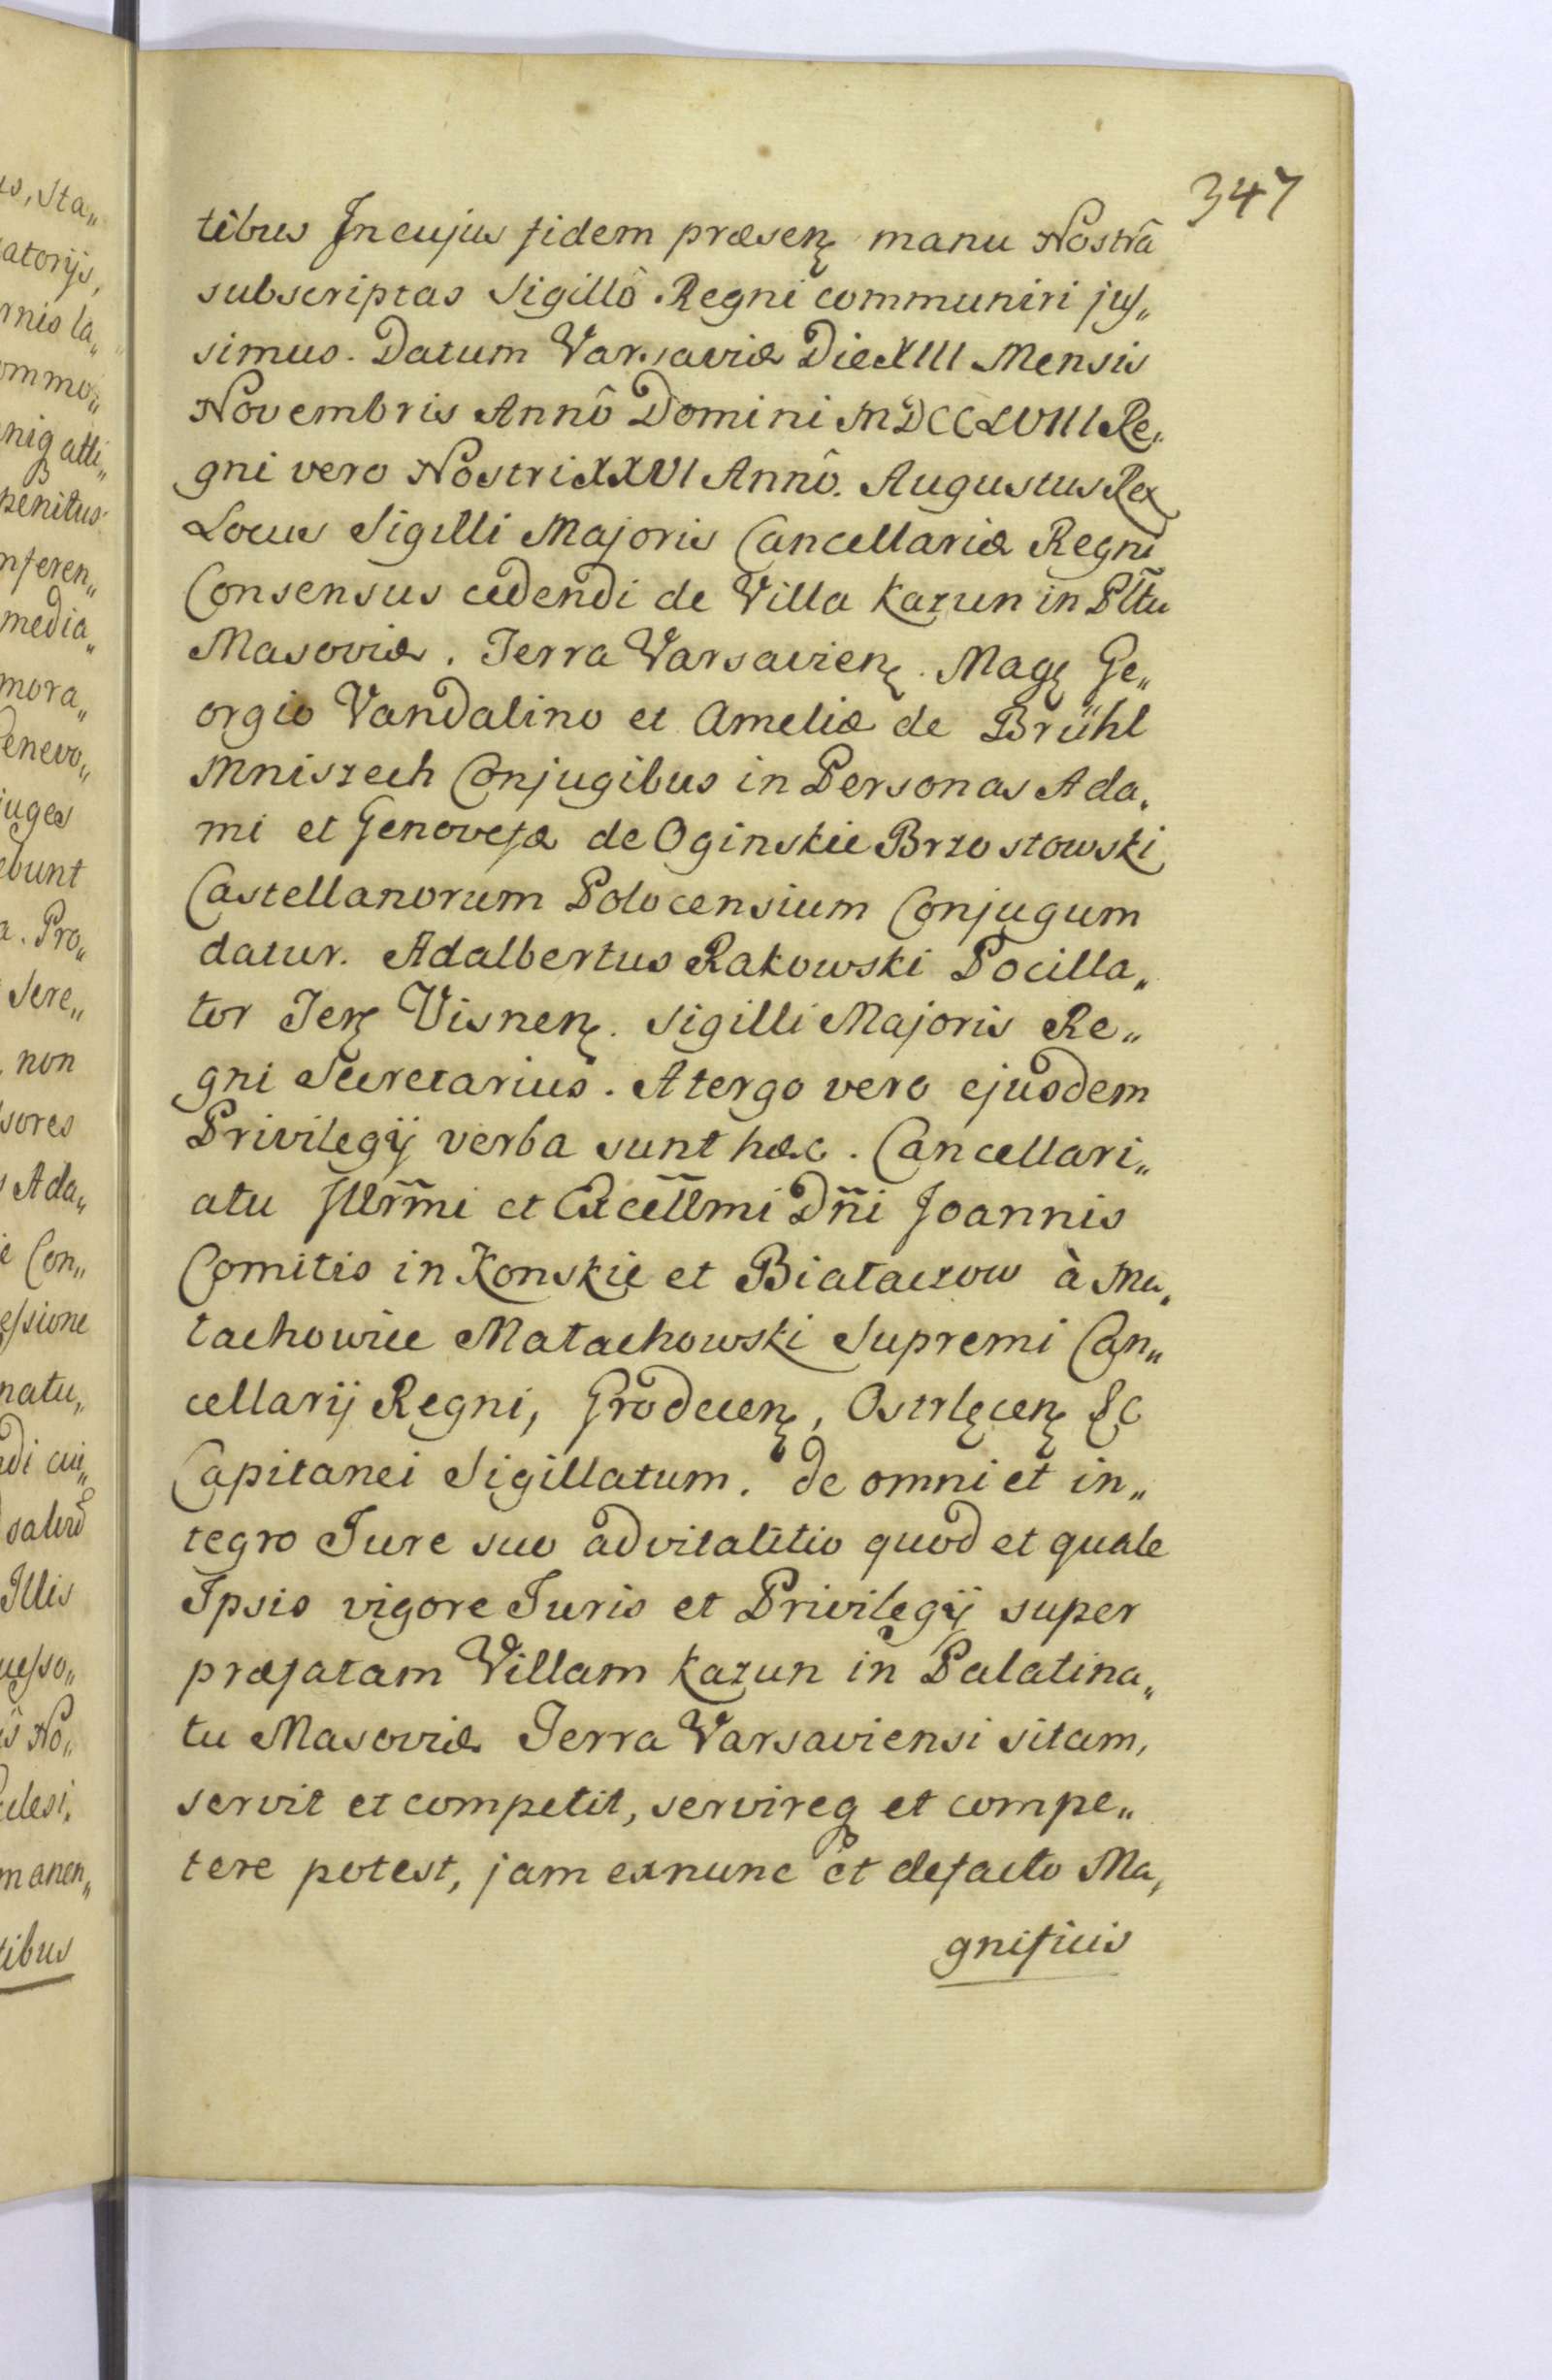 347
tibus Jn cujus fidem præsenꝫ manu Nostrâ
subscriptas Sigillô Regni communiri jus„
simus. Datum Varsaviæ Die XIII Mensis
Novembris Annô Domini MDCCLVIII Re„
gni vero Nostri XXVI Annô. Augustus Rex
Locus Sigilli Majoris Cancellariæ Regni
Consensus cedendi de Villa Kazun in Pltũ
Masoviæ. Terra Varsavienꝫ. Magꝫ Ge„
orgio Vandalino et Ameliæ de Brühl
Mniszech Conjugibus in Personas Ada„
mi et Genovefæ de Oginskie Brzostowski
Castellanorum Polocensium Conjugum
datur. Adalbertus Rakowski Pocilla„
tor Terꝫ Visnenꝫ. Sigilli Majoris Re„
gni Secretarius. A tergo vero ejusdem
Privilegÿ verba sunt hæc. Cancellari„
atu Jllr̃mi et Excell̃mi Dñi Joannis
Comitis in Konskie et Białaczow à Ma„
łachowice Małachowski Supremi Can„
cellarij Regni, Grodecenꝫ, Ostrlęcenꝫ &c
Capitanei Sigillatum. de omni et in„
tegro Jure suo advitalitio quod et quale
Ipsis vigore Juris et Privilegÿ super
præfatam Villam Kazun in Palatina„
tu Masoviæ Terra Varsaviensi sitam,
servit et competit, servireq et compe„
tere potest, jam exnunc et defacto Ma„
gnificis
us, Sta„
atorijs,
rnis la„
ommo„
niq atti„
penitus
nferen„
media„
mora„
enevo„
juges
ebunt
a. Pro„
Sere„
non
sores
Ada„
Con„
essione
natu„
di cui„
Illis
uesso„
No„
clesi„
manen„
tibus